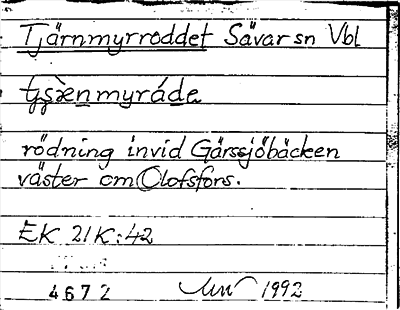 Tjärnmyrroddet Sävar sn Vbl
rödning invid Gärssjöbäcken
väster om Olofsfors.
EK 21K:42
4672 1992